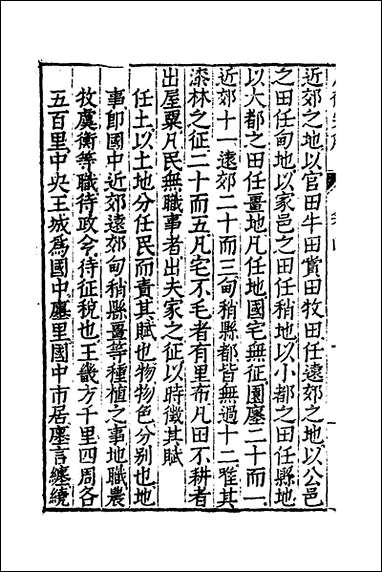 近郊之地以官田牛田賞田牧田任遠郊之地以公邑
之田任甸地以家邑之田任稍地以小都之田任縣地
以大都之田任畺地凡任地國宅無征園廛二十而一
近郊十一遠郊二十而三甸稍縣都皆無過十二唯其
漆林之征二十而五凡宅不毛者有里布凡田不耕者
出屋粟凡民無職事者出夫家之征以時徵其賦
任土以土地分任民而責其賦也物物色分别也地
事即國中近郊遠郊甸稍縣畺等種植之事地職農
牧虞衡等職待政令待征稅也王畿方千里四周各
五百里中央王城為國中廛里國中市居廛言纏繞